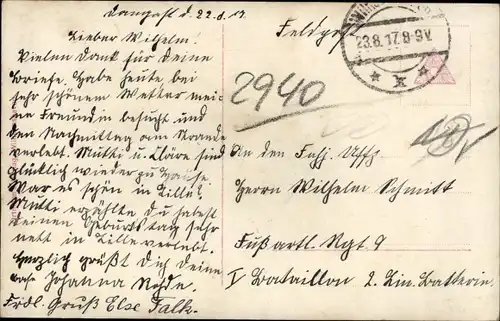 Dangast d. 22.8.17.
Lieber Wilhelm!
Vielen Dank für deine
Briefe. Habe heute bei
sehr schönem Wetter mei-
ne Freundin besucht und
den Nachmittag am Strande
verlebt. Mutti u. Kläre sind
glücklich wieder zu Hause
War es schön in Lille?
Mutti erzählte du habest
deinen Geburtstag sehr
nett in Lille verlebt.
Herzlich grüßt Dich deine
Johanna
Frdl. Gruß Else Falk.
Feldpost
23.8.17.8-9V.
2940
An den Fahj. Uffz.
Herrn Wilhelm Schmidt
Fußartl. Rgt. 9
Bataillon 2. Batterie